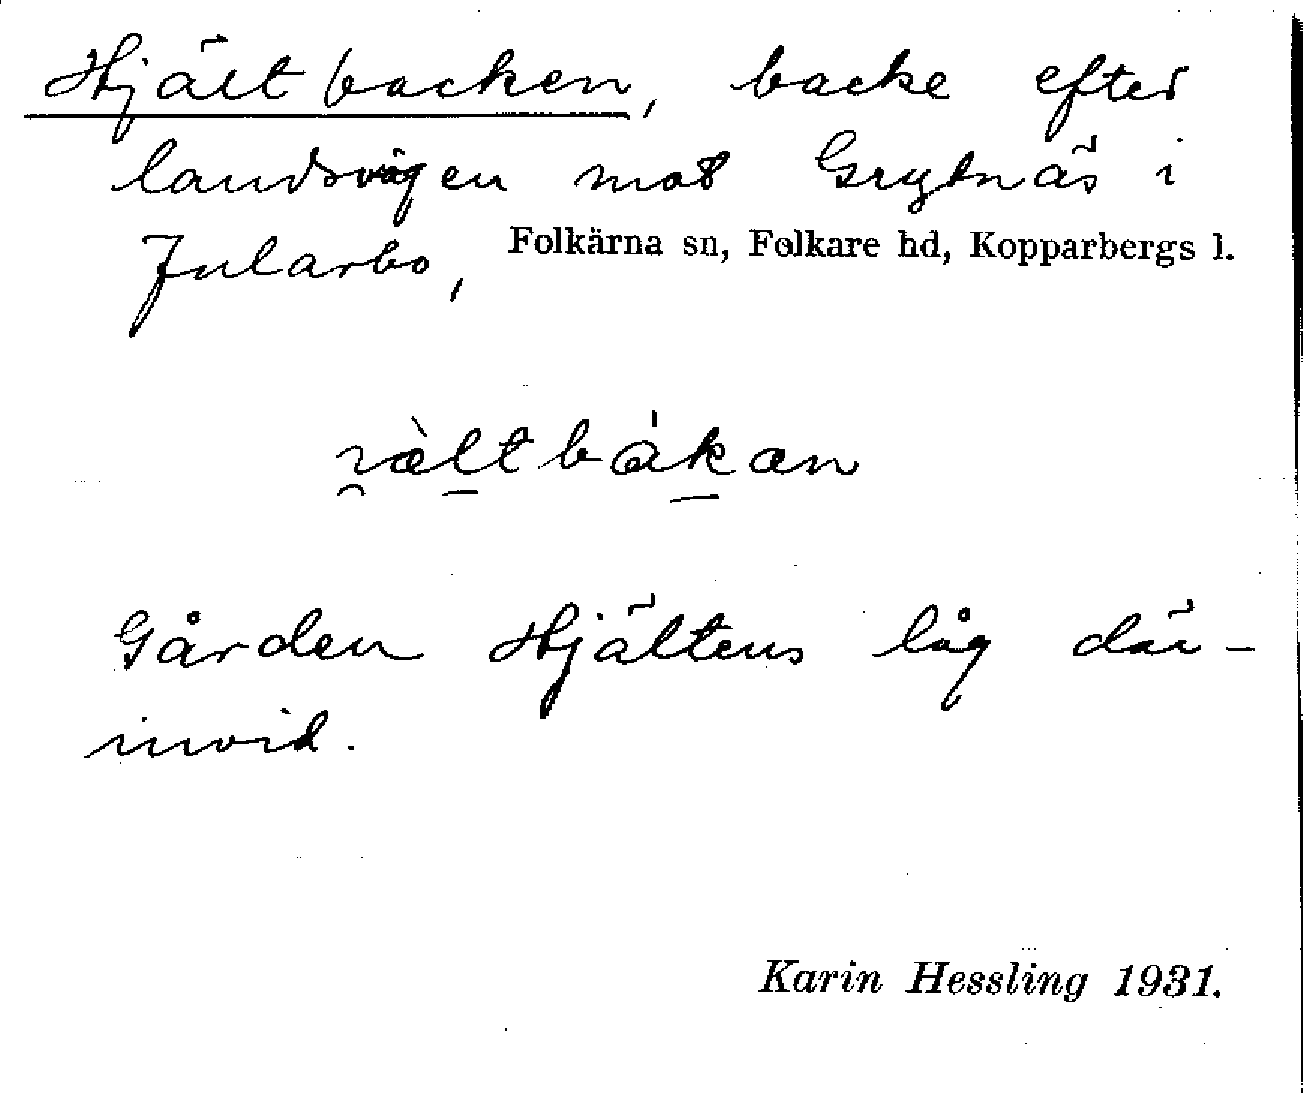 Hjältbacken, backe efter
landsvägen mot Grytnäs i
Jularbo, Folkärna sn, Folkare hd, Kopparbergs l.
Gården Hjältens låg där-
invid.
Karin Hessling 1931.